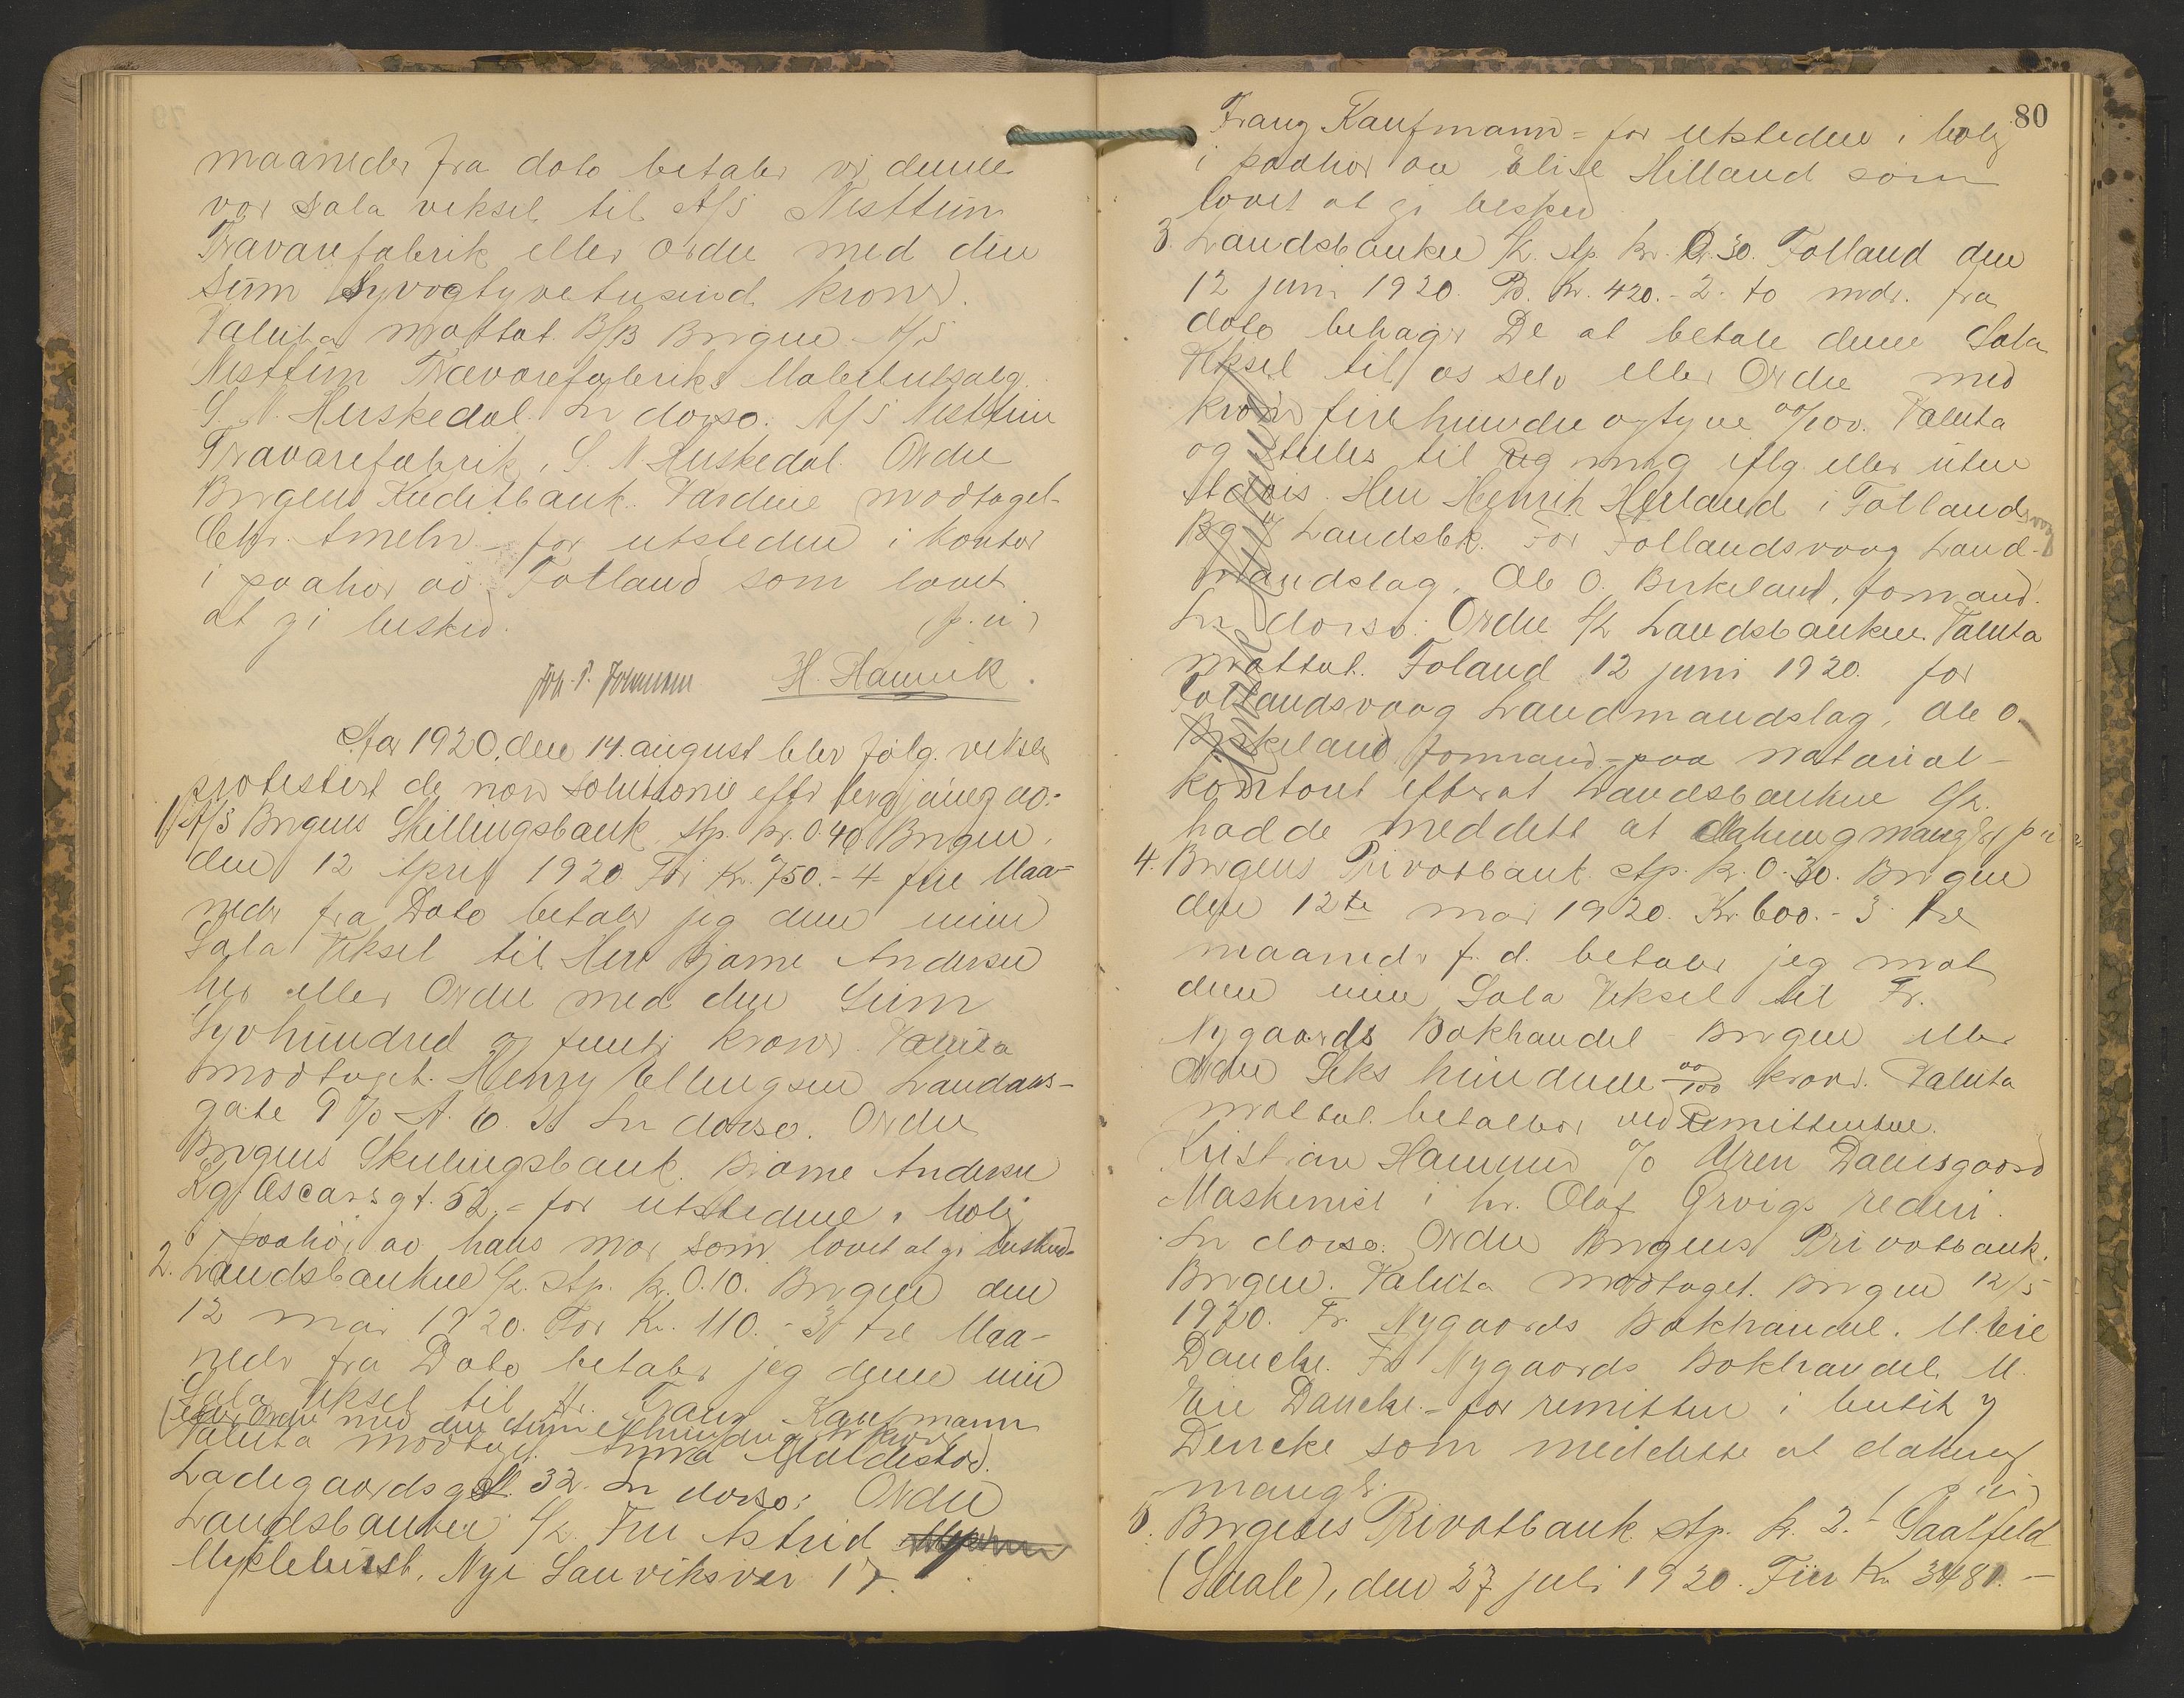 maaneder fra dato betaler vi denne
vor sola veksel til A/S Nesttun
Trævarefabrik eller ordre med den
sum syvogtyvetusind kroner.
Valuta mottat. B/B Bergen A/S
Nesttun Trævarefabriks Møbelutsalg.
S. N. Herskedal. In dorso: A/S Nesttun
Trævarefabrik, S. N. Herskedal. Ordre
Bergens Kreditbank. Værdien modtaget.
Chr. Ameln - for utstederen i kontor
i paahør av Totland som lovet
at gi besked.
Joh. P. Johannson H. Hamrik.
Aar 1920, den 14. august blev følg. veksler
protestert de non solutione efter begjæring av:
1) A/S Bergens Skillingsbank, stp. kr. 0.40 Bergen,
den 12 April 1920. For Kr. 750.- 4 fire Maa-
neder fra Dato betaler jeg denne min
Sola Veksel til Herr Bjarne Andersen
her eller Ordre med den Sum
Syvhundred og femti kroner. Valuta
modtaget. Henry Ellingsen Landaas-
gate 9 In dorso. Ordre
Bergens Skillingsbank. Bjarne Andersen
Kg. Oscarsgt. 52. - for utstederne i bolig
i paahør av hans mor som lovet at gi besked.
2. Landsbanken A/L. stp. kr. 0.10. Bergen den
12 mai 1920. For Kr. 110. - 3 tre Maa-
neder fra Dato betaler jeg denne min
Sola Veksel til Hr. Franz Kaufmann
(eller Ordre med den sum etthundrede ti kroner
Valuta modtaget. Anna
Ladegaardsgt. 32. In dorso: Ordre
Landsbanken A/L. Fru Astrid
Myklebust, Nye Sanviksvei 17.
80
Franz Kaufmann - for utstederen i bolig
i paahør av Elise Hilland som
lovet at gi besked
3. Landsbanken A/L. stp. kr. 0.30. Totland den
12 juni 1920. B. Kr. 420.- 2. to mdr. fra
dato behager De at betale denne Sola
Veksel til os selv eller Ordre med
kroner firehundre og tyve 00/100. Valuta
og stilles til Rεg eller uten
Herr Henrik Herland i Totlandsvaag
Landsbk. For Totlandsvaag Land-
mandslag, Ole O. Birkeland, formand.
In dorso: Ordre A/L Landsbanken. Valuta
mottat. Toland 12 juni 1920. for
Totlandsvaag Landmandslag, Ole O.
Birkeland formand - paa notarial-
kontoret efterat Landsbanken A/L.
hadde meddelt at dækning mangler
4. Bergens Privatbank. stp. kr. 0.30. Bergen
den 12te mai 1920. Kr. 600.- 3 tre
maaneder f. d. betaler jeg mot
denne min Sola Veksel til Fr.
Nygaards Bokhandel - Bergen eller
Ordre Seks hundrede 00/100 kroner. Valuta
mottat. betalbar ved Remittenten.
Kristian Hammer % Uren Damsgaard
Maskinist i hr. Olaf Grvigs rederi.
In dorso. Ordre Bergens Privatbank.
Bergen. Valuta modtaget. Bergen 12/5
1920. Fr. Nygaards Bokhandel. M. Eie
Dancke. Fr Nygaards Bokhandel, M.
Eie Dancke. - for remitten i butik
Dencke som meddelte at dækning
mangler.
5. Bergens Privatbank. stp. k. 2. Saalfeld
(Saale), den 27 juli 1920. Für Kr 3481. -